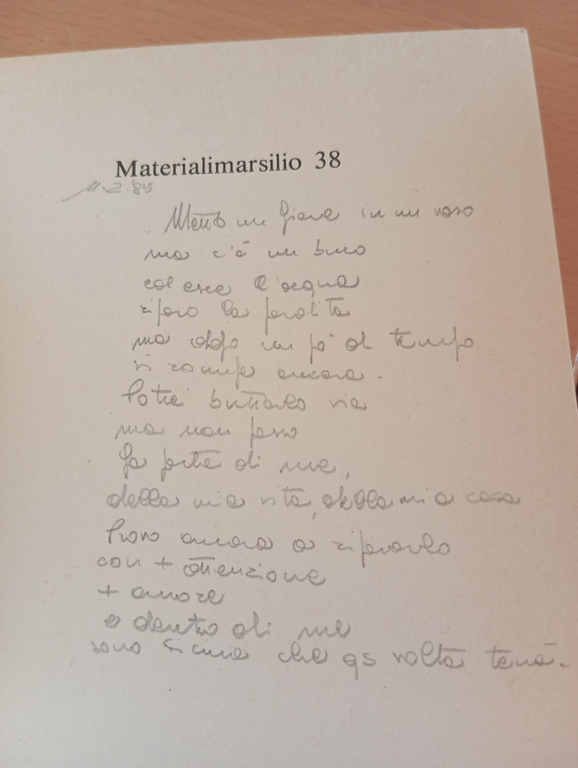 Materialimarsilio 38
11.2.83
Metto un fiore in un vaso
ma c'è un buco
ed esce l'acqua
riparo la perdita
ma dopo un pò di tempo
si rompe ancora.
Potrei buttarlo via
ma non posso
fa parte di me,
della mia vita, della mia casa
Provo ancora a ripararlo
con + attenzione
+ amore
e dentro di me
sono sicura che qs volta terrà.